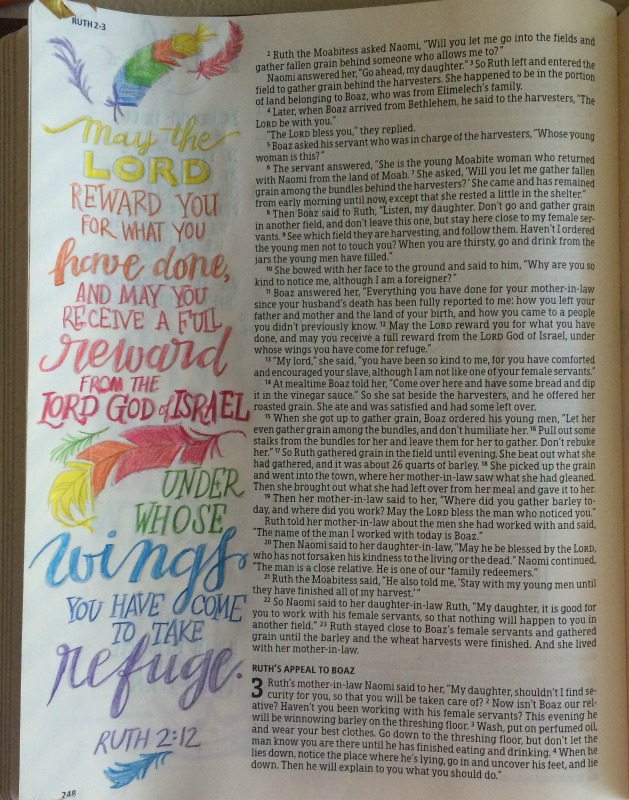 RUTH 2-3
may the
LORD
REWARD YOU
FOR WHAT YOU
have done,
AND MAY YOU
RECEIVE A FULL
reward
FROM THE
LORD GOD of ISRAEL
UNDER
WHOSE
wings
YOU HAVE COME
TO TAKE
refuge.
RUTH 2:12
248
2 Ruth the Moabitess asked Naomi, "Will you let me go into the fields and
gather fallen grain behind someone who allows me to?"
Naomi answered her, "Go ahead, my daughter." 3 So Ruth left and entered the
field to gather grain behind the harvesters. She happened to be in the portion
of land belonging to Boaz, who was from Elimelech's family.
4 Later, when Boaz arrived from Bethlehem, he said to the harvesters, "The
LORD be with you."
"The LORD bless you," they replied.
5 Boaz asked his servant who was in charge of the harvesters, "Whose young
woman is this?"
6 The servant answered, "She is the young Moabite woman who returned
with Naomi from the land of Moab. 7 She asked, 'Will you let me gather fallen
grain among the bundles behind the harvesters?' She came and has remained
from early morning until now, except that she rested a little in the shelter."
8 Then Boaz said to Ruth, "Listen, my daughter. Don't go and gather grain
in another field, and don't leave this one, but stay here close to my female ser-
vants. 9 See which field they are harvesting, and follow them. Haven't I ordered
the young men not to touch you? When you are thirsty, go and drink from the
jars the young men have filled."
10 She bowed with her face to the ground and said to him, "Why are you so
kind to notice me, although I am a foreigner?"
11 Boaz answered her, "Everything you have done for your mother-in-law
since your husband's death has been fully reported to me: how you left your
father and mother and the land of your birth, and how you came to a people
you didn't previously know. 12 May the LORD reward you for what you have
done, and may you receive a full reward from the LORD God of Israel, under
whose wings you have come for refuge."
13 "My lord," she said, "you have been so kind to me, for you have comforted
and encouraged your slave, although I am not like one of your female servants."
14 At mealtime Boaz told her, "Come over here and have some bread and dip
it in the vinegar sauce." So she sat beside the harvesters, and he offered her
roasted grain. She ate and was satisfied and had some left over.
15 When she got up to gather grain, Boaz ordered his young men, "Let her
even gather grain among the bundles, and don't humiliate her. 16 Pull out some
stalks from the bundles for her and leave them for her to gather. Don't rebuke
her." 17 So Ruth gathered grain in the field until evening. She beat out what she
had gathered, and it was about 26 quarts of barley. 18 She picked up the grain
and went into the town, where her mother-in-law saw what she had gleaned.
Then she brought out what she had left over from her meal and gave it to her.
19 Then her mother-in-law said to her, "Where did you gather barley to-
day, and where did you work? May the LORD bless the man who noticed you."
Ruth told her mother-in-law about the men she had worked with and said,
"The name of the man I worked with today is Boaz."
20 Then Naomi said to her daughter-in-law, "May he be blessed by the LORD,
who has not forsaken his kindness to the living or the dead." Naomi continued,
"The man is a close relative. He is one of our *family redeemers."
21 Ruth the Moabitess said, "He also told me, 'Stay with my young men until
they have finished all of my harvest.'"
22 So Naomi said to her daughter-in-law Ruth, "My daughter, it is good for
you to work with his female servants, so that nothing will happen to you in
another field." 23 Ruth stayed close to Boaz's female servants and gathered
grain until the barley and the wheat harvests were finished. And she lived
with her mother-in-law.
RUTH'S APPEAL TO BOAZ
3 Ruth's mother-in-law Naomi said to her, "My daughter, shouldn't I find se-
curity for you, so that you will be taken care of? 2 Now isn't Boaz our rel-
ative? Haven't you been working with his female servants? This evening he
will be winnowing barley on the threshing floor. 3 Wash, put on perfumed oil,
and wear your best clothes. Go down to the threshing floor, but don't let the
man know you are there until he has finished eating and drinking. 4 When he
lies down, notice the place where he's lying, go in and uncover his feet, and lie
down. Then he will explain to you what you should do."